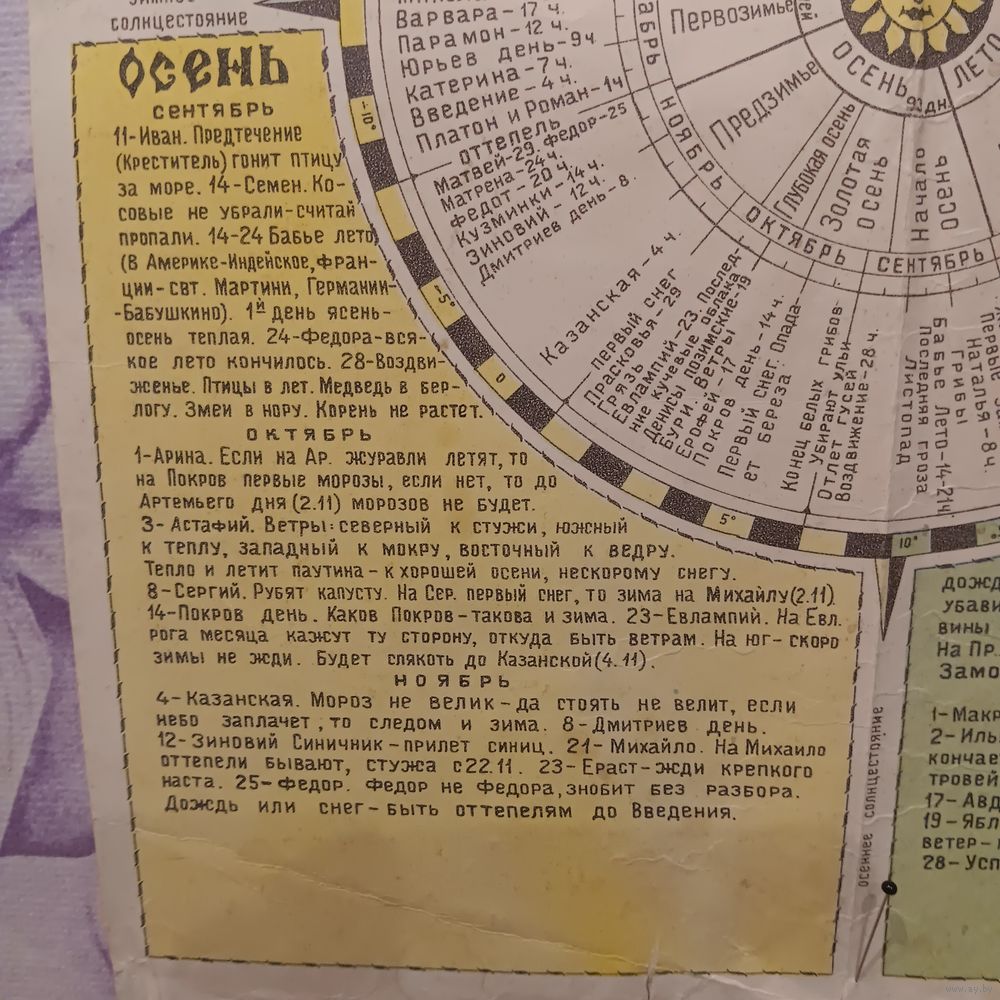 солнцестояние
ОСЕНЬ
СЕНТЯБРЬ
11-Иван. Предтечение
(Креститель) гонит птицу
за море. 14-Семен. Ко-
совые не убрали-считай
пропали. 14-24 Бабье лето
(в Америке-Индейское, фран-
ции-свт. Мартини, Германии-
-Бабушкино). 1й день ясень-
осень теплая. 24-Федора-вся-
кое лето кончилось. 28-Воздви-
женье. Птицы в лет. Медведь в бер-
логу. Змеи в нору. Корень не растет.
ОКТЯБРЬ
1-Арина. Если на Ар. журавли летят, то
на Покров первые морозы, если нет, то до
Артемьего дня (2.11) морозов не будет.
3-Астафий. Ветры: северный к стужи, южный
к теплу, западный к мокру, восточный к ведру.
Тепло и летит паутина-к хорошей осени, нескорому снегу.
8-Сергий. Рубят капусту. На Сер. первый снег, то зима на Михайлу (2.11).
14-Покров день. Каков Покров-такова и зима. 23-Евлампий. На Евл.
рога месяца кажут ту сторону, откуда быть ветрам. На юг-скоро
зимы не жди. Будет слякоть до Казанской (4.11).
НОЯБРЬ
4-Казанская. Мороз не велик-да стоять не велит, если
небо заплачет, то следом и зима. 8-Дмитриев день.
12-Зиновий Синичник-прилет синиц. 21-Михайло. На Михаило
оттепели бывают, стужа с 22.11. 23-Ераст-жди крепкого
наста. 25-Федор. Федор не Федора, знобит без разбора.
Дождь или снег-быть оттепелям до Введения.
Варвара-17 ч.
Парамон-12 ч.
Юрьев день-9ч
Катерина-7 ч.
Введение-4 ч.
Платон и Роман-1ч
оттепель
Матвей-29. Федор-25
Матрена-24ч.
Федот-20 ч.
Кузминки-14 ч.
Зиновий-12 ч.
Дмитриев день-8.
Казанская-4 ч.
Первый снег
Прасковья-29
Грязь
Евлампий-23. Послед-
ние кучевые облака
Денисы позимские-19
Бури. Ветры
Ерофей-17
Покров день-14 ч.
Первый снег. Опада-
ет береза
Конец белых грибов
Убирают ульи
Отлет гусей
Воздвижение-28 ч.
Листопад
Последняя гроза
Бабье Лето-14-21ч.
Грибы
Наталья-8 ч.
Первые
НОЯБРЬ
ОКТЯБРЬ
СЕНТЯБРЬ
Первозимье
Предзимье
Глубокая осень
Золотая
осень
Начало
осень
ОСЕНЬ
ЛЕТО
-10°
-5°
0
5°
10°
осеннее солнцестояние
дожд
убави
вины
На Пр.
Замо
1-Макр
2-Иль
кончае
тровей
17-Авд
19-Ябл
ветер-
28-Усп
www.ay.by